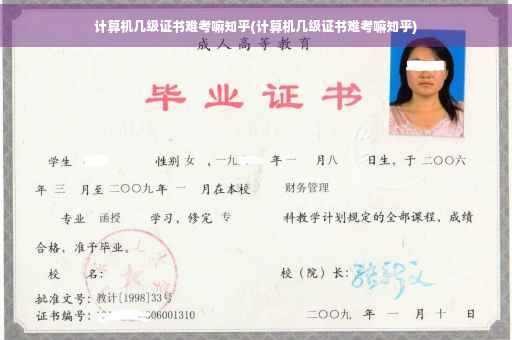 计算机几级证书难考嘛知乎(计算机几级证书难考嘛知乎)
成人高等教育
毕业证书
学生 性别 女 ，一九 年 一 月 八 日生，于 二〇〇六
年 三 月至 二〇〇九 年 一 月在本校 财务管理
专业 函授 学习，修完 专 科教学计划规定的全部课程，成绩
合格，准予毕业。
校 名： 校（院）长：
批准文号：教计[1998]33号
证书编号： 06001310 二〇〇九 年 一 月 十 日